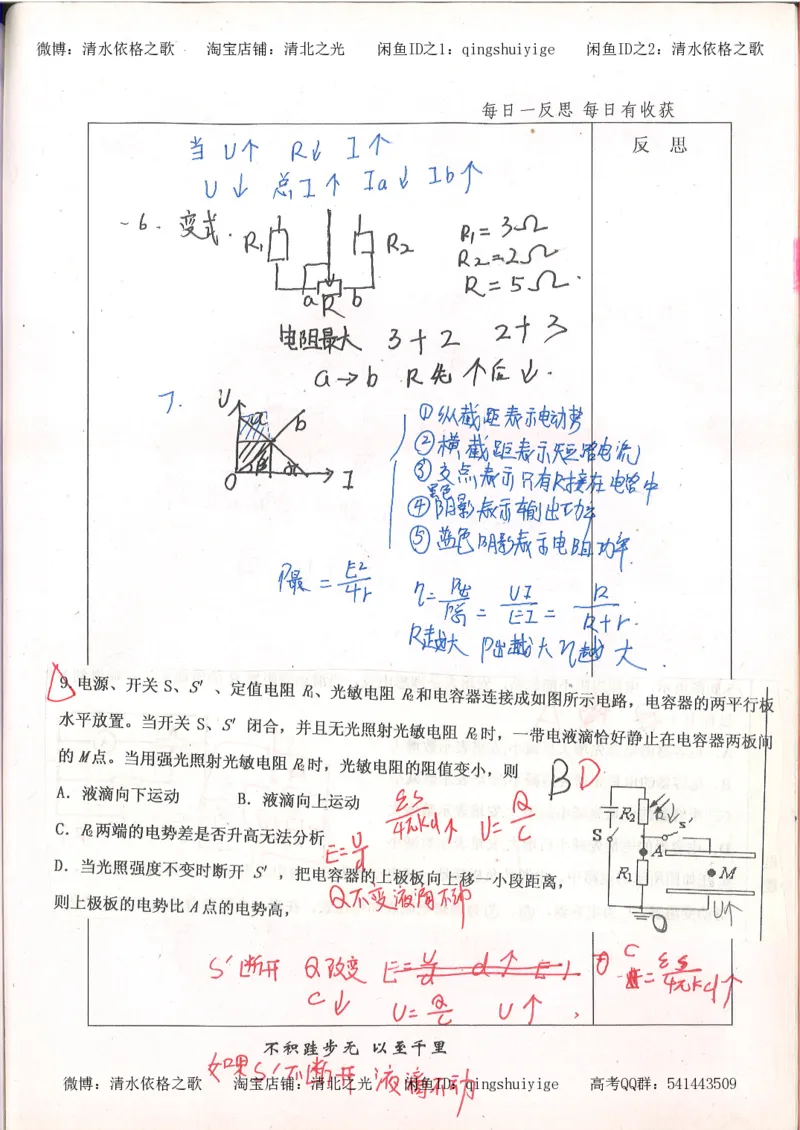 微博：清水依格之歌 淘宝店铺：清北之光 闲鱼ID之1：qingshuiyige 闲鱼ID之2：清水依格之歌
每日一反思 每日有收获
反 思
当 U↑ R↓ I↑
U↓ 总I↑ Ia↓ Ib↑
6. 变式.
R₁ R₂
a R b
R₁=3Ω
R₂=2Ω
R=5Ω.
电阻最大 3+2 2+3
a→b R先↑后↓.
7.
U a b
O I
①纵截距表示电动势
②横截距表示短路电流
③交点表示只有R接在电路中
黑色
④阴影表示输出功率
⑤蓝色阴影表示电阻功率.
P最 = E²/4r
η = P出/P总 = UI/EI = R/R+r.
R越大 P出越大 η越大.
9. 电源、开关 S、S′ 、定值电阻 R₁、光敏电阻 R₂和电容器连接成如图所示电路，电容器的两平行板
水平放置。当开关 S、S′ 闭合，并且无光照射光敏电阻 R₂时，一带电液滴恰好静止在电容器两板间
的 M点。当用强光照射光敏电阻 R₂时，光敏电阻的阻值变小，则
BD
A．液滴向下运动 B．液滴向上运动
C．R₂两端的电势差是否升高无法分析
D．当光照强度不变时断开 S′ ，把电容器的上极板向上移一小段距离，
则上极板的电势比 A点的电势高，
εS/4πkd↑ U=Q/C
E=U/d
Q不变液滴不动
R₂ R↓
S S′
A
R₁ M
U↑
0
S′断开 Q改变 E=U/d d↑ E↓
C↓ U=Q/C U↑，
C = εS/4πkd↑
不积跬步无 以至千里
如果S′不断开 液滴不动
微博：清水依格之歌 淘宝店铺：清北之光 闲鱼ID：qingshuiyige 高考QQ群：541443509